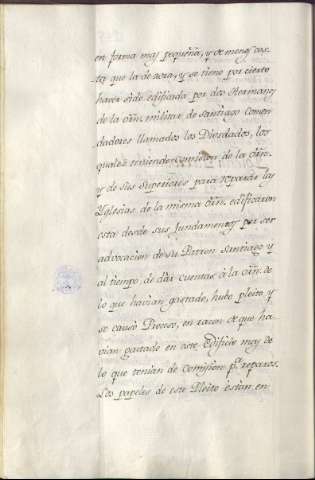 en forma muy pequeña, y de menos cos-
ta que la de acia, y se tiene por cierto
haver sido edificada por dos Hermanos
de la orñ. militar de Santiago Comen-
dadores llamados los Diosdados, los
quales teniendo comision de la orñ.
y de sus Superiores para reparar las
Yglesias de la misma orñ. edificaron
esta desde sus fundamentos por ser
advocacion de su Patron Santiago y
al tiempo de dàr cuentas à la orñ. de
lo que havian gastado, hubo pleito y
se causò Proceso, en razon de que ha-
vian gastado en este Edificio mas de
lo que tenian de comision pª. reparos.
Los papeles de este Pleito estan en